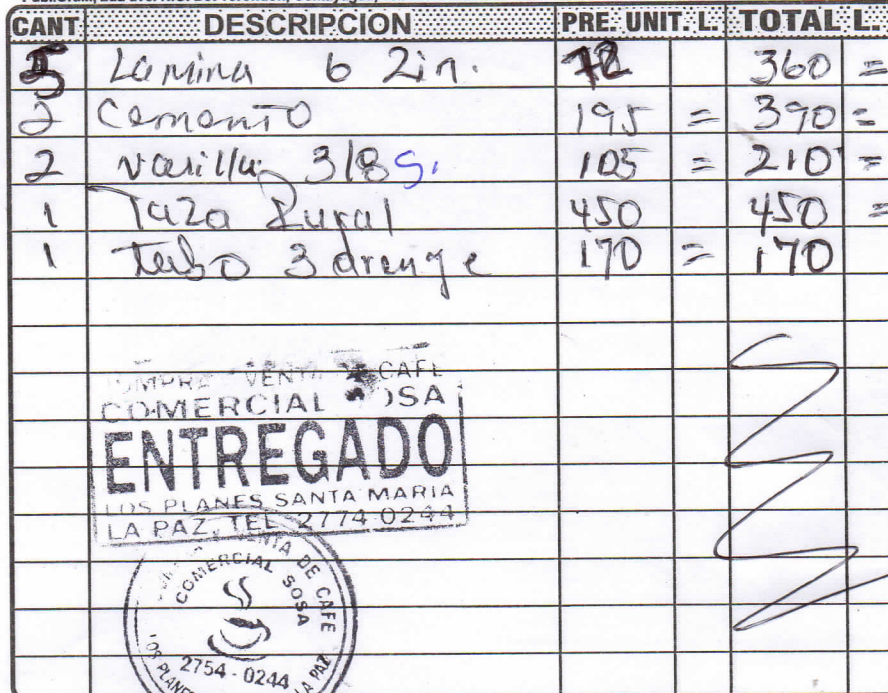 CANT DESCRIPCION PRE. UNIT. L. TOTAL L.
5 Lamina 6 Zin. 72 360 =
2 Cemento 195 = 390 =
2 varilla 3/8 G. 105 = 210 =
1 Taza Rural 450 450 =
1 Tubo 3 drenge 170 = 170
VENTA CAFE
COMERCIAL SOSA
ENTREGADO
LOS PLANES SANTA MARIA
LA PAZ, TEL 2774 0244
VENTA DE CAFE
COMERCIAL SOSA
2754 - 0244
LOS PLANES LA PAZ